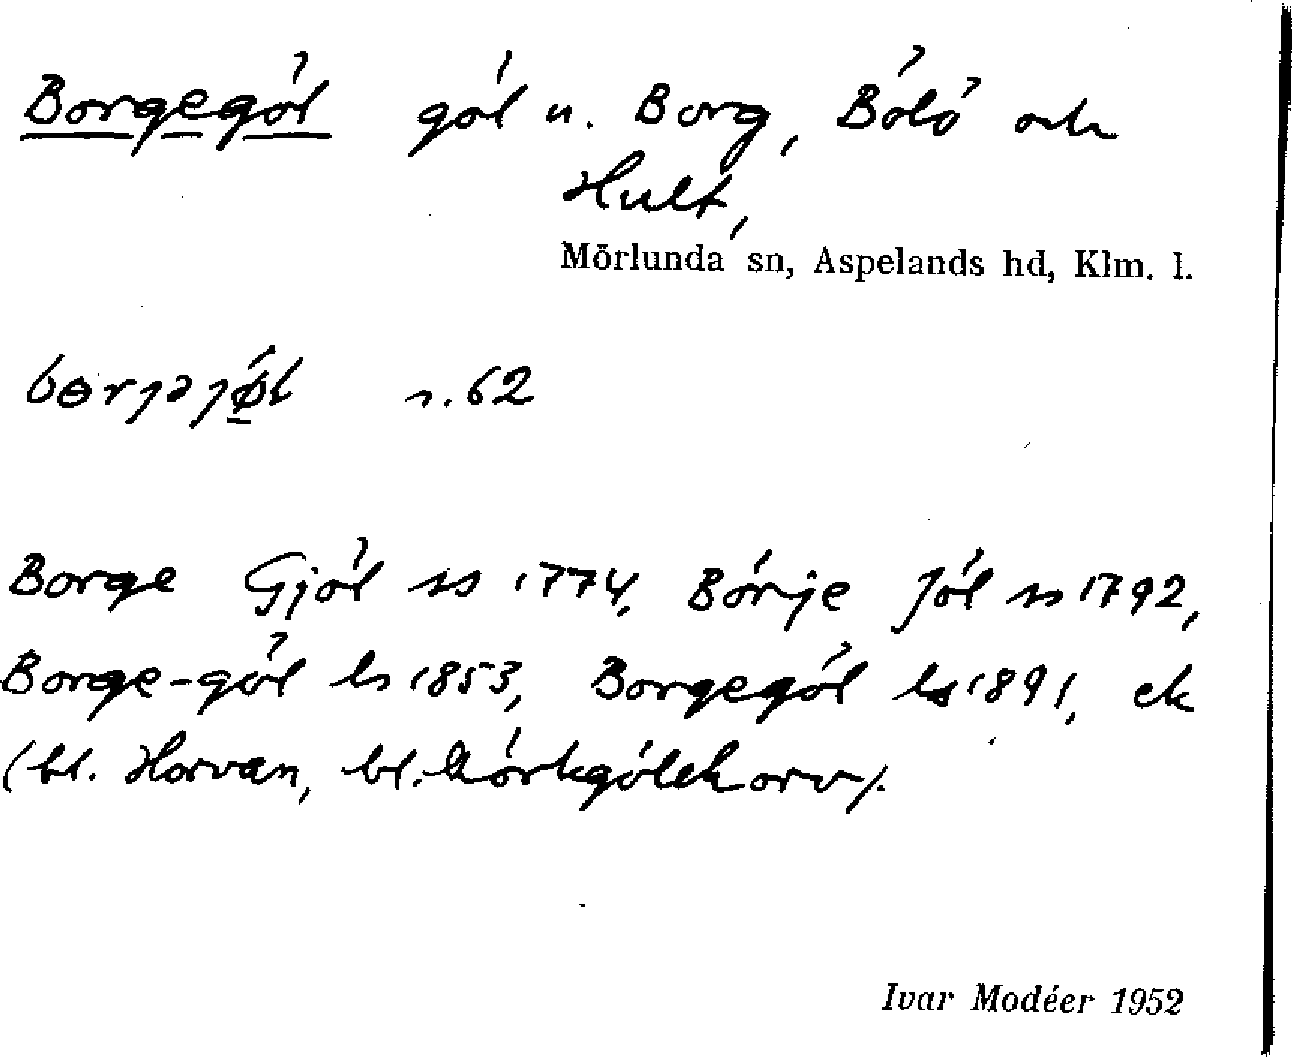 Borgegöl göl u. Borg, Bölö och
Hult,
Mörlunda sn, Aspelands hd, Klm. l.
s. 62
Borge Gjöl ss 1774, Börje Jöl ss 1792,
Borge-göl ls 1853, Borgegöl ls 1891, ek
(bl. Horvan, bl.
Ivar Modéer 1952